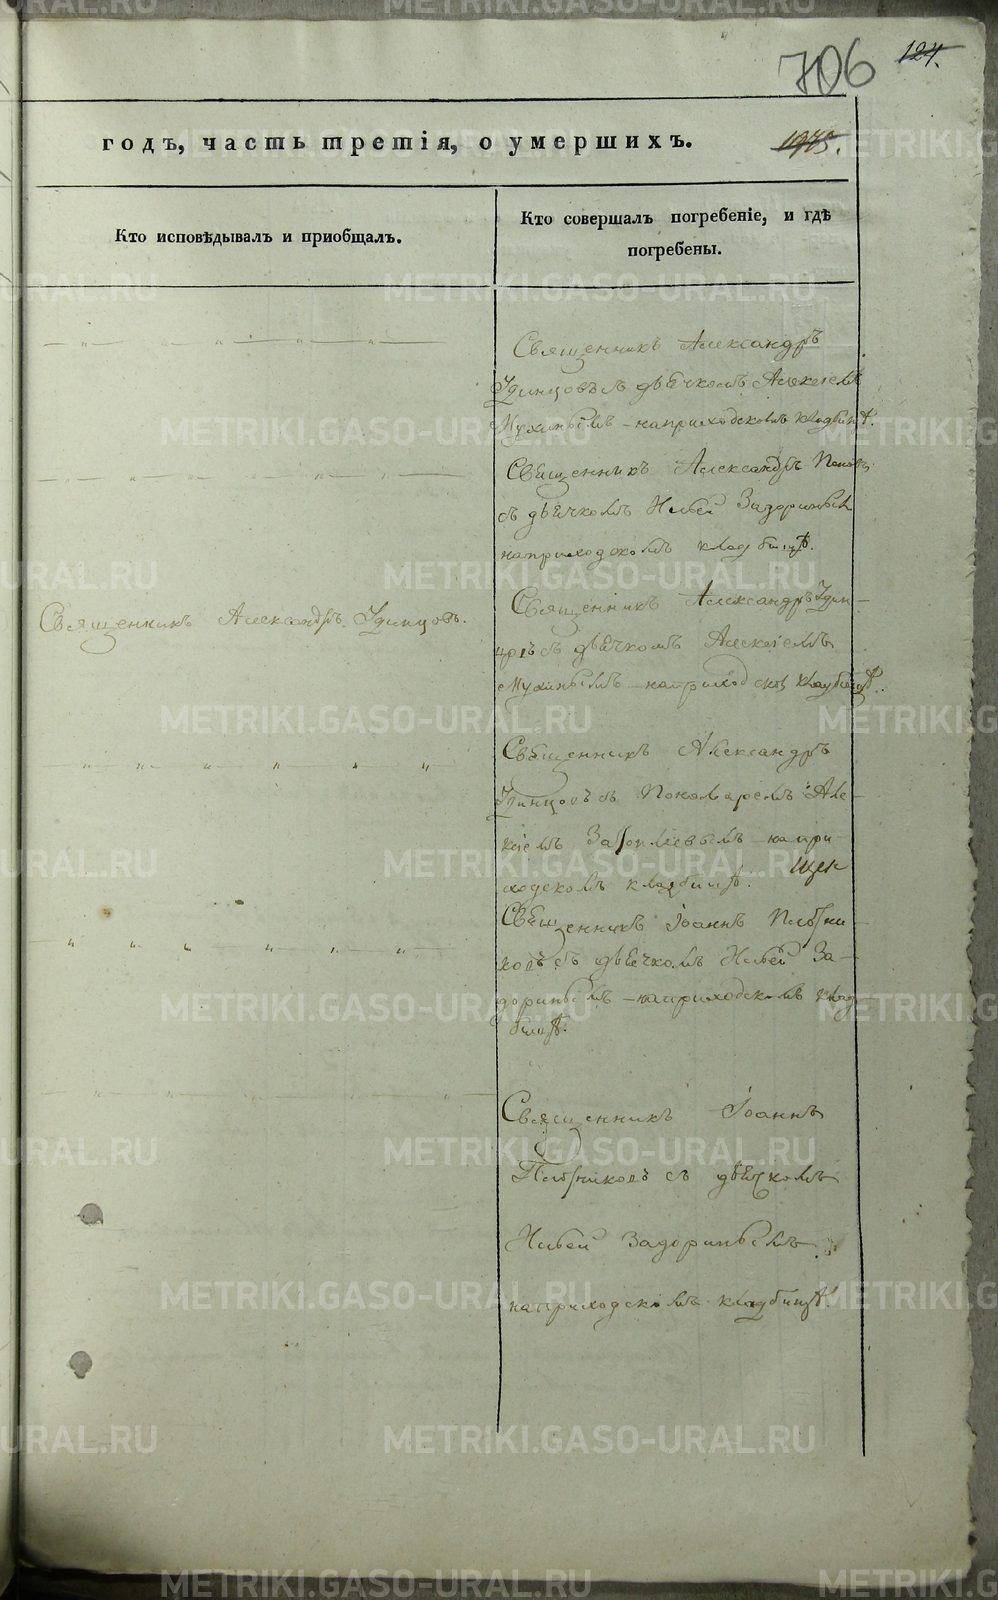 706 124.
годъ, часть третія, о умершихъ. 1975.
Кто исповѣдывалъ и приобщалъ.
Кто совершалъ погребеніе, и гдѣ
погребены.
Священникъ Александръ
Удинцовъ съ дьячкомъ Алексіемъ
Мухинымъ на приходскомъ кладбищѣ.
Священникъ Александръ Поповъ
съ дьячкомъ Ильей Задоринымъ
на приходскомъ кладбищѣ.
Священникъ Александръ Удинцовъ.
Священникъ Александръ Удин-
цовъ съ дьячкомъ Алексіемъ
Мухинымъ на приходском кладбищѣ.
Священникъ Александръ
Удинцовъ съ Пономаремъ Але-
ксіемъ на при-
ходскомъ кладбищѣ.
Священникъ Іоаннъ Плотни-
ковъ съ дьячкомъ Ильей За-
доринымъ на приходскомъ клад-
бищѣ.
Священникъ Іоаннъ
Плотниковъ съ дьячкомъ
Ильей Задоринымъ
на приходскомъ кладбищѣ.
METRIKI.GASO-URAL.RU